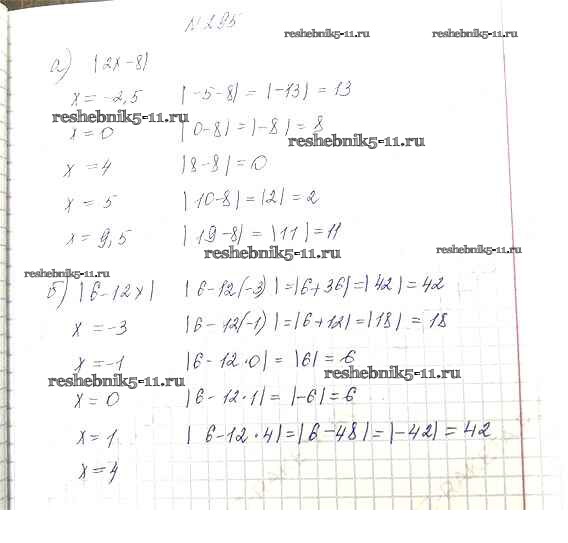 № 295
reshebnik5-11.ru reshebnik5-11.ru
а) |2x-8|
x = -2,5 |-5-8| = |-13| = 13
reshebnik5-11.ru
x = 0 |0-8| = |-8| = 8
reshebnik5-11.ru
x = 4 |8-8| = 0
x = 5 |10-8| = |2| = 2
x = 9,5 |19-8| = |11| = 11
reshebnik5-11.ru reshebnik5-11.ru
reshebnik5-11.ru
б) |6-12x| |6-12(-3)| = |6+36| = |42| = 42
x = -3 |6-12(-1)| = |6+12| = |18| = 18
x = -1 |6-12·0| = |6| = 6
reshebnik5-11.ru reshebnik5-11.ru
x = 0 |6-12·1| = |-6| = 6
x = 1 |6-12·4| = |6-48| = |-42| = 42
x = 4